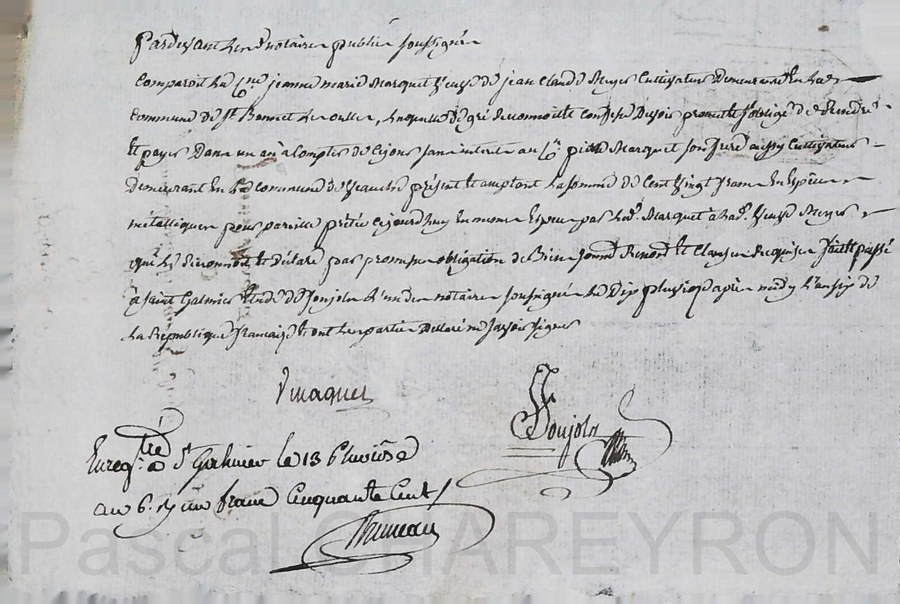 Pardevant les notaires publics soussignés
Comparoit la C.ne jeanne marie Marquet veuve de jean Claude Meyer Cultivateur demeurant en la
commune de St Bonnet les oulles, laquelle de gré reconnoit et confesse devoir promet et s'oblige de rendre
et payer dans un an à compter de ce jour sans interets au C. Marquet son frere aussy Cultivateur
demeurant en la commune de Veauche présent et acceptant la somme de Cent vingt francs en Espèces
métalliques pour pareille prêtée cejourd'huy en même espèce par led. Marquet à lad. veuve Meyer
qui le reconnoit et déclare par promesse obligation de Biens soum. Renon. et Clauses requises fait et passé
à Saint Galmier Etude de Soujols l'un des notaires soussignés le Dix pluviose après midy l'an six de
la République française et ont les parties déclaré ne savoir signer
Vinagnes
Soujols
Enreg. à St Galmier le 13 Pluviôse
an 6. reçu un franc Cinquante Cent
Pascal CHAREYRON